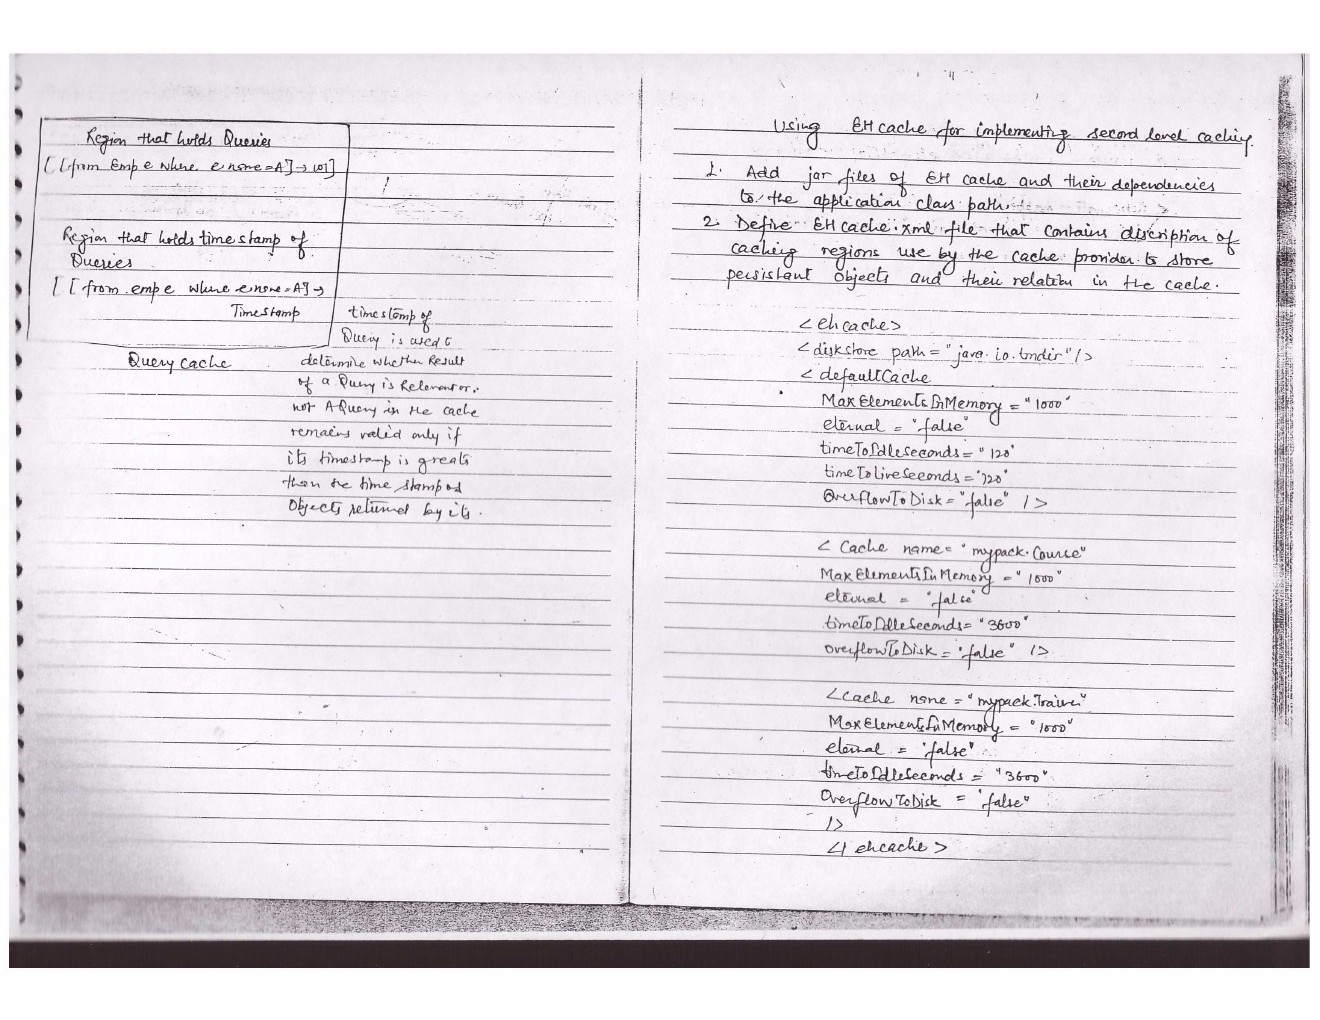 Region that holds Queries
[ [from Emp e where e name=A] → 101]
Region that holds time stamp of
Queries
[ [from emp e where e name=A] →
Timestamp
Query cache
timestamp of
Query is used to
determine whether Result
of a Query is Relevant or
not A Query in the cache
remains valid only if
its timestamp is greate
than the time stamp of
Objects returned by its.
Using EH cache for implementing second level caching.
1. Add jar files of EH cache and their dependencies
to the application class path.
2. Define EH cache.xml file that contains discription of
caching regions use by the cache provider to store
persistant Objects and their relation in the cache.
<ehcache>
<diskstore path="java.io.tmdir"/>
<defaultCache
MaxElementsInMemory="1000"
eternal="false"
timeToIdleseconds="120"
timeToliveSeconds="120"
OverflowToDisk="false" />
<Cache name="mypack.Course"
MaxElementsInMemory="1000"
eternal="false"
timeToIdleSeconds="3600"
overflowToDisk="false" />
<cache name="mypack.Trainer"
MaxElementsInMemory="1000"
eternal="false"
timeToIdleSeconds="3600"
OverflowToDisk="false"
/>
</ehcache>